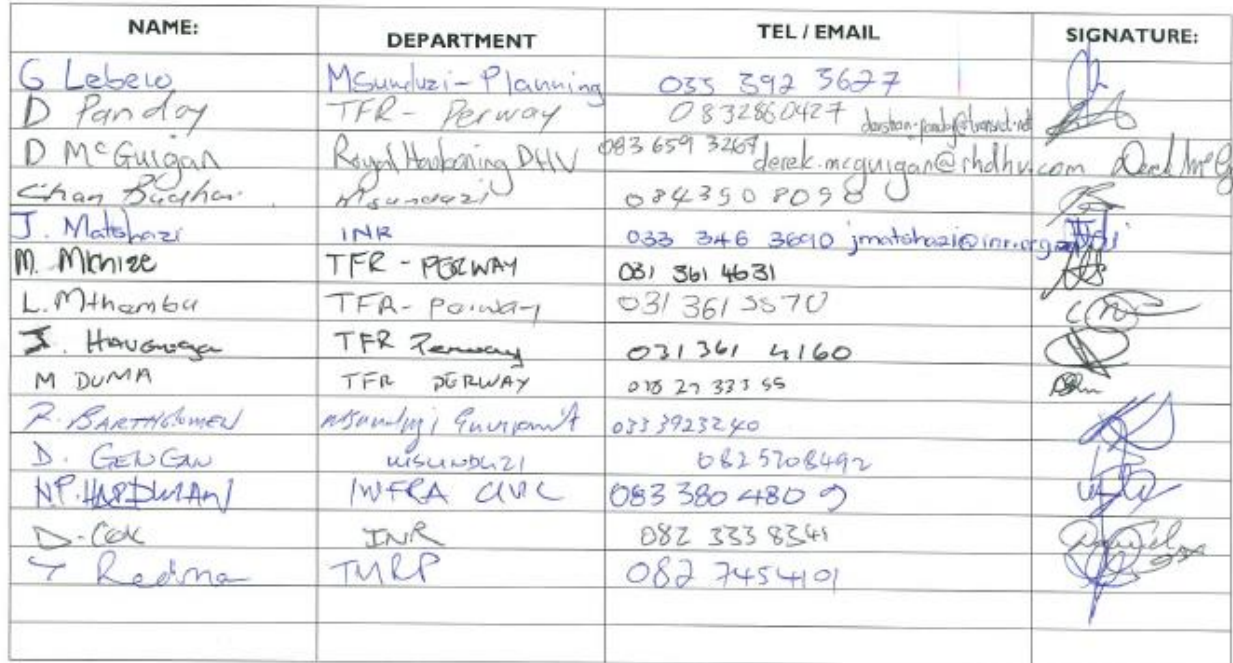 NAME: DEPARTMENT TEL / EMAIL SIGNATURE:
G Lebelo Msunduzi - Planning 033 392 3627
D Pandoy TFR - Perway 0832860427
D McGuigan Royal Haskoning DHV 083 659 3267 derek.mcguigan@rhdhv.com Derek McG
Msunduzi 084 350 8098
J. Matshazi INR 033 346 3690 jmatshazi@inr.org
M. Mkhize TFR - PERWAY 031 361 4631
L. Mthembu TFR - Perway 031 361 5570
TFR Perway 031 361 4160
M DUMA TFR PERWAY
R. BARTHOLOMEW Msunduzi 0333923240
D. GENGAN MSUNDUZI 0825708492
INFRA CIVIL 083 380 480 9
D. Cox INR 082 333 8341
TMRP 082 7454101